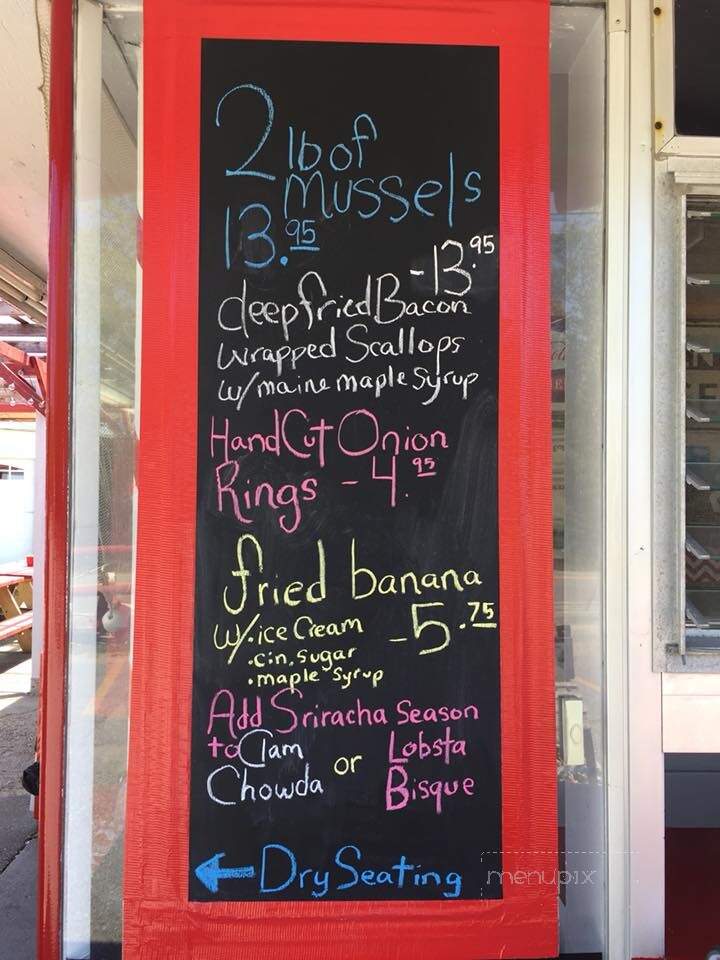 2 lb of
mussels
13.95
-13.95
deep fried Bacon
wrapped Scallops
w/ maine maple syrup
Hand Cut Onion
Rings - 4.95
fried banana
w/ . ice Cream -5.75
. cin. sugar
. maple syrup
Add Sriracha Season
to Clam or Lobsta
Chowda Bisque
← Dry Seating
menupix